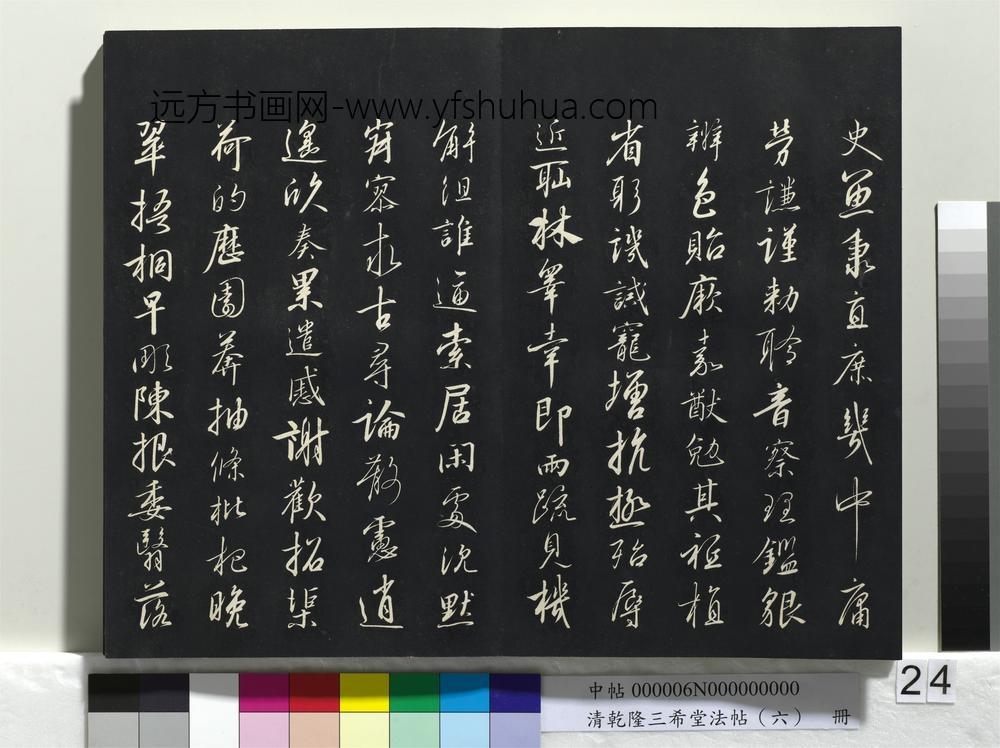 远方书画网-www.yfshuhua.com
史魚秉直庶幾中庸
勞謙謹勅聆音察理鑑貌
辨色貽厥嘉猷勉其祗植
省躬譏誡寵增抗極殆辱
近恥林睾幸即兩疏見機
解組誰逼索居閑處沈默
寂寥求古尋論散慮逍
遙欣奏累遣慼謝歡招渠
荷的歷園莽抽條枇杷晚
翠梧桐早彫陳根委翳落
24
中帖 000006N000000000
清乾隆三希堂法帖（六） 册